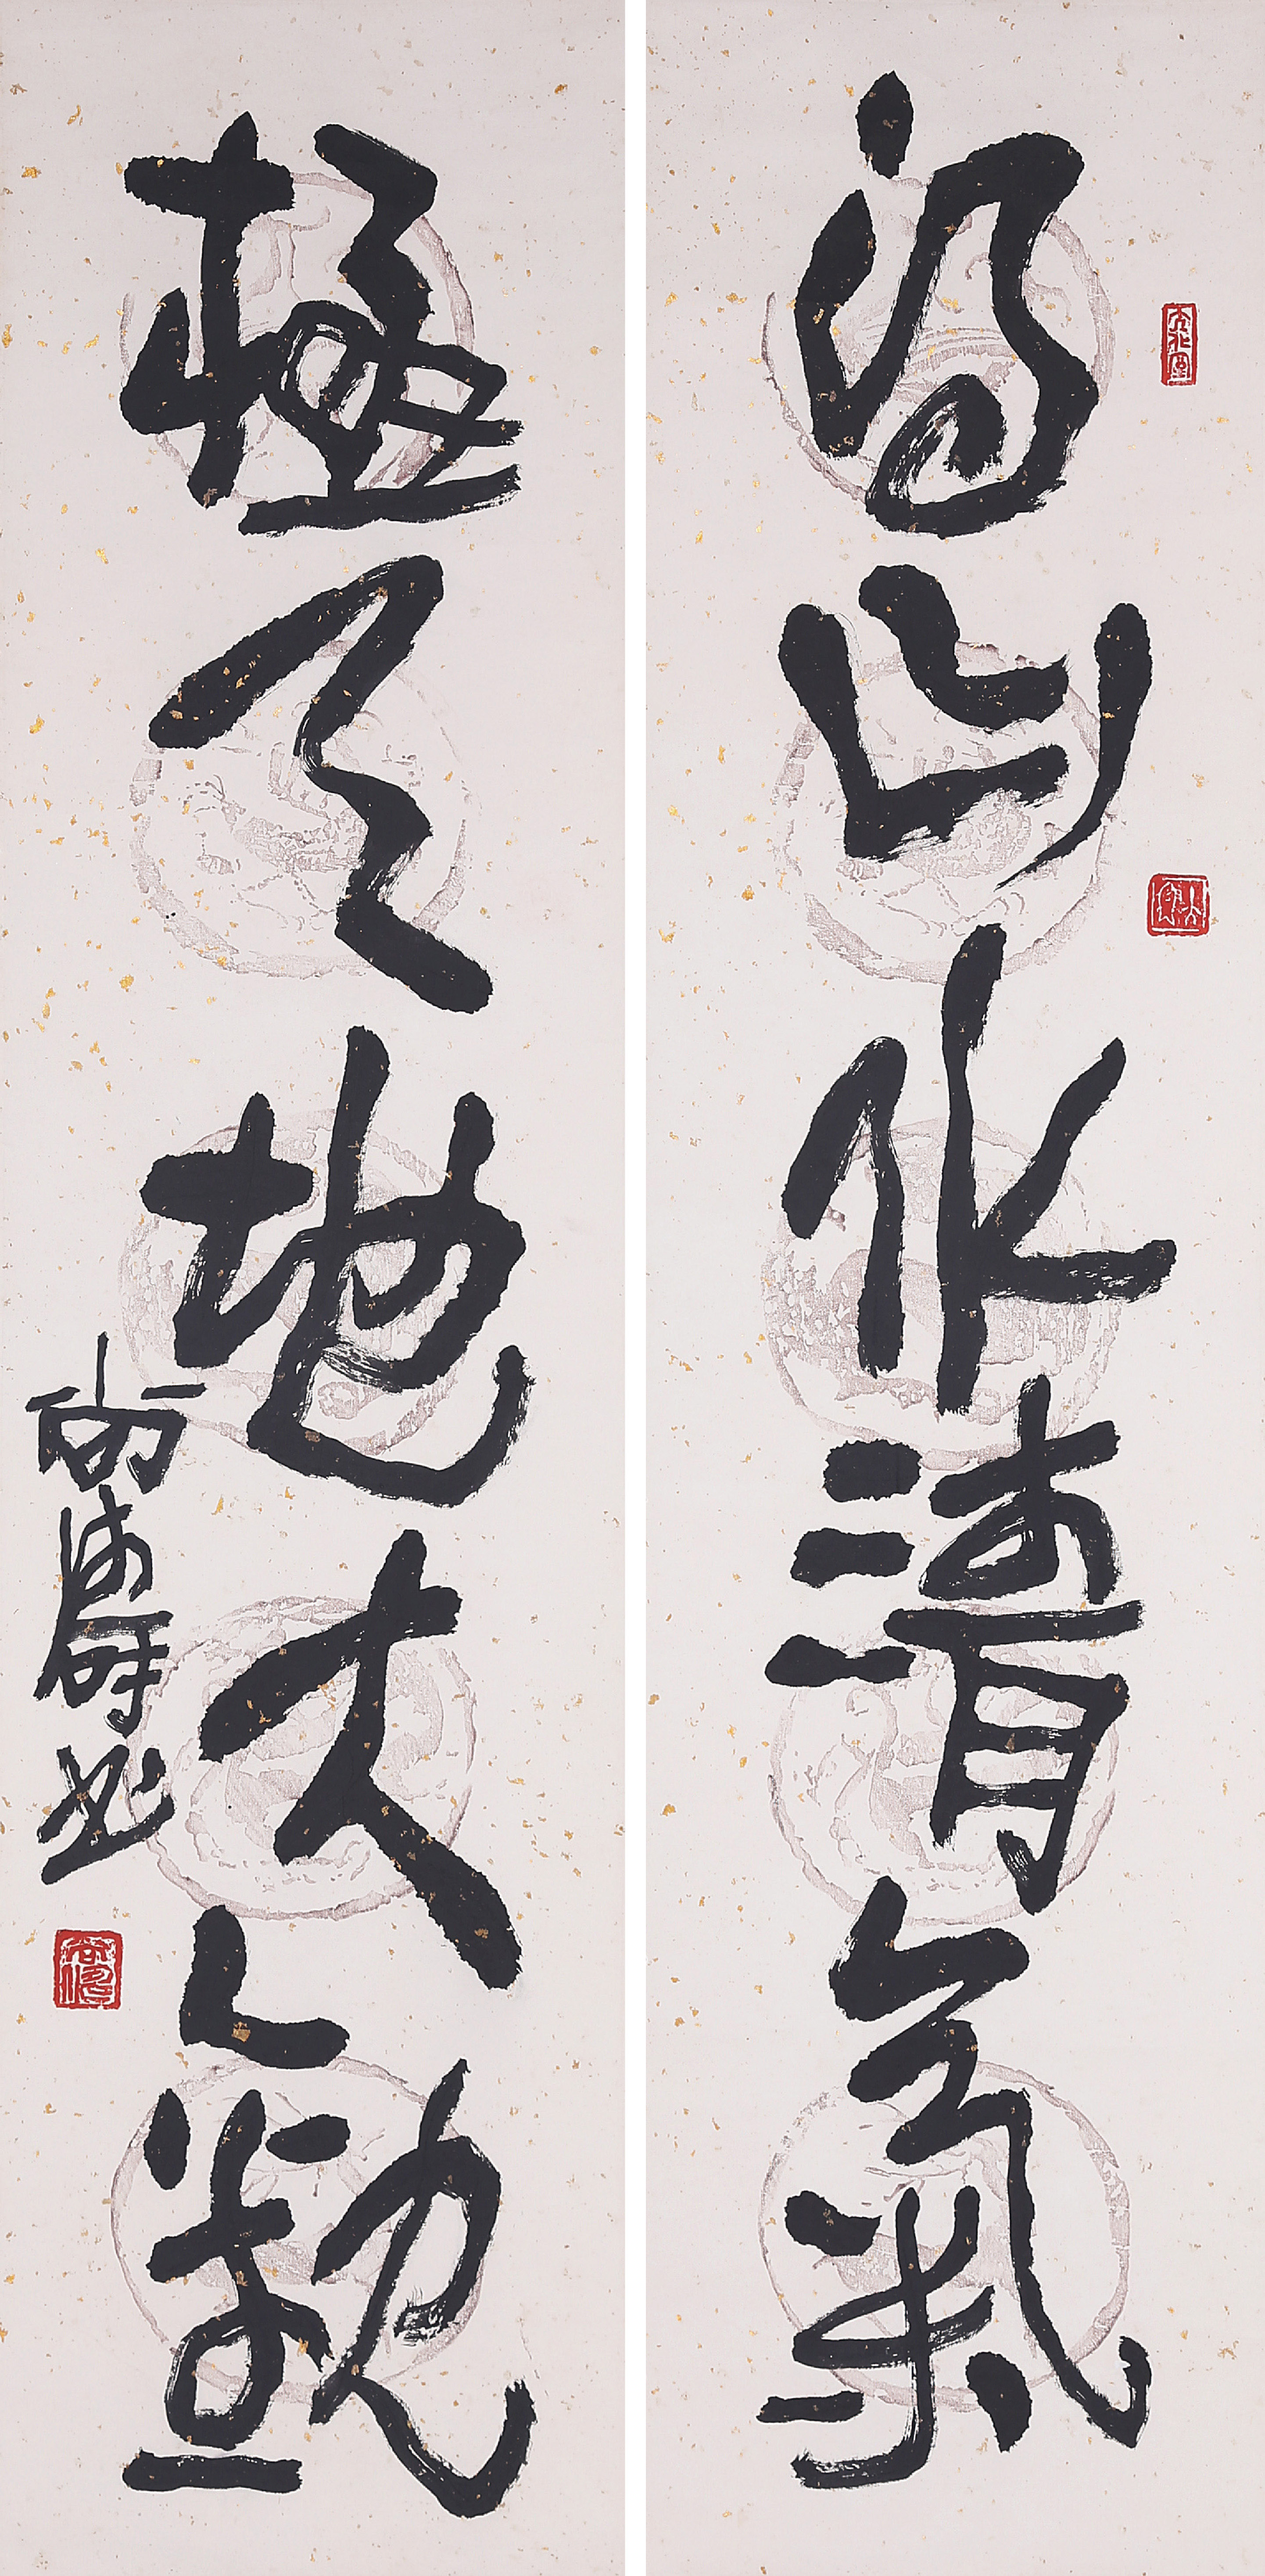 得山水清氣
極天地大觀
尚濤書